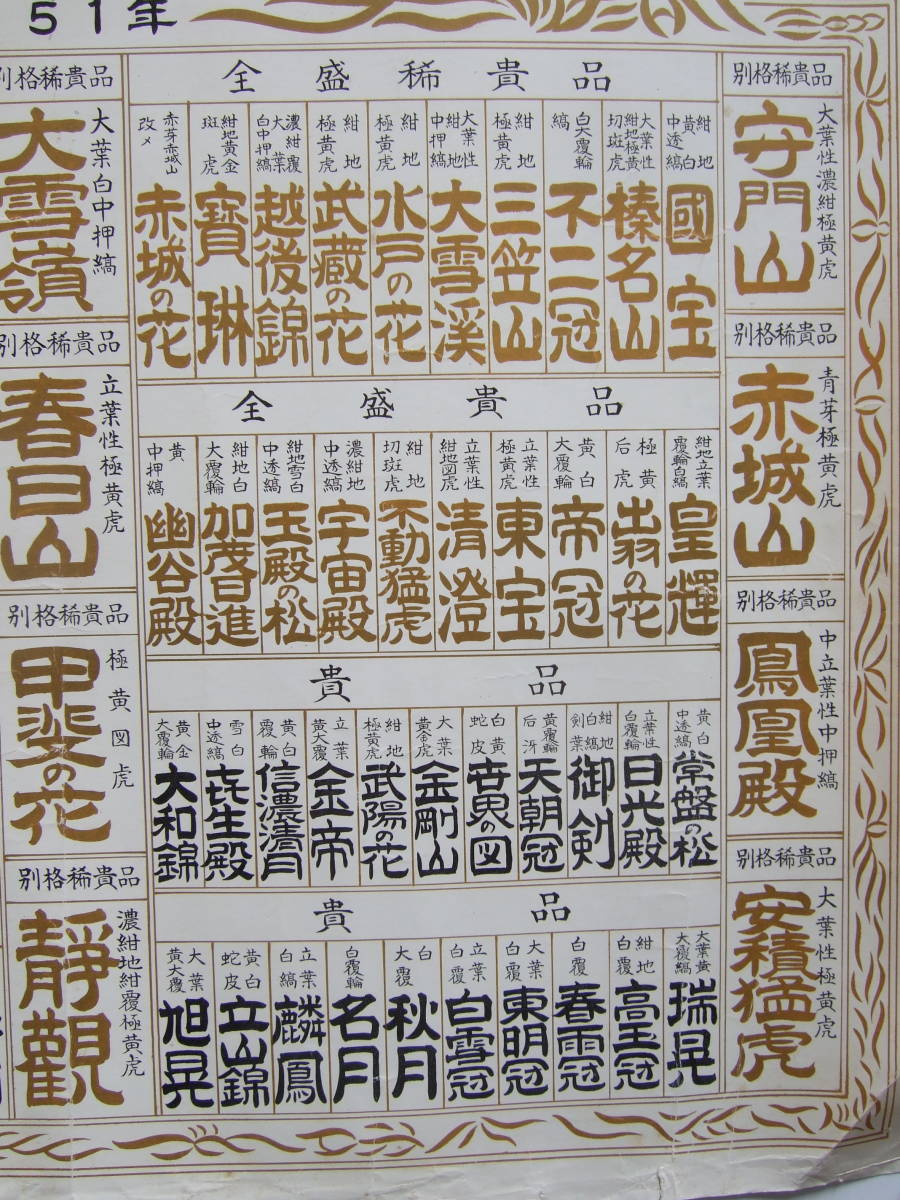 51年
別格稀貴品
大葉性濃紺極黄虎
守門山
別格稀貴品
青芽極黄虎
赤城山
別格稀貴品
中立葉性中押縞
鳳凰殿
別格稀貴品
大葉性極黄虎
安積猛虎
全盛稀貴品
紺地黄白中透縞
國宝
大葉性紺地極黄切斑虎
榛名山
白大覆輪縞
不二冠
紺地極黄虎
三笠山
大葉性紺地中押縞
大雪渓
紺地極黄虎
水戸の花
紺地極黄虎
武蔵の花
濃紺覆大葉白中押縞
越後錦
紺地黄金斑虎
寳琳
赤芽赤城山改メ
赤城の花
全盛貴品
紺地立葉覆輪白縞
皇輝
極黄后虎
出羽の花
黄白大覆輪
帝冠
立葉性極黄虎
東宝
立葉性紺地図虎
清澄
紺地切斑虎
不動猛虎
濃紺地中透縞
宇宙殿
紺地雪白中透縞
玉殿の松
紺地白大覆輪
加茂日進
黄中押縞
幽谷殿
貴品
黄白中透縞
常盤の松
立葉性白覆輪
日光殿
紺地白縞剣葉
御剣
黄覆輪后冴
天朝冠
白黄蛇皮
世界の図
大葉黄金虎
金剛山
紺地極黄虎
武陽の花
立葉黄大覆
金帝
黄白覆輪
信濃清月
雪白中透縞
長生殿
黄金大覆輪
大和錦
貴品
大葉黄大覆縞
瑞晃
紺地白覆
高玉冠
白覆
春雨冠
大葉白覆
東明冠
立葉白覆
白雪冠
白大覆
秋月
白覆輪
名月
立葉白縞
麟鳳
黄白蛇皮
立山錦
大葉黄大覆
旭晃
別格稀貴品
大葉白中押縞
大雪嶺
別格稀貴品
立葉性極黄虎
春日山
別格稀貴品
極黄図虎
甲斐の花
別格稀貴品
濃紺地紺覆極黄虎
靜觀